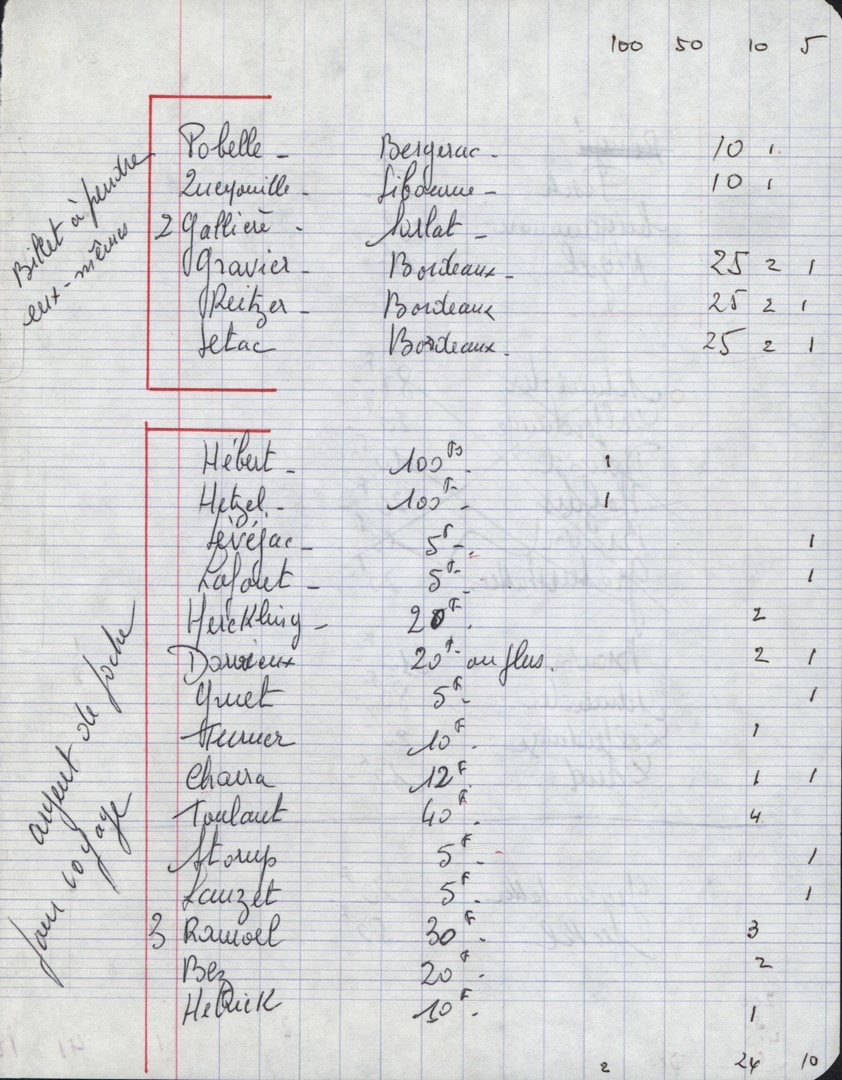 100 50 10 5
Billet à prendre
eux-mêmes
Pobelle - Bergerac - 10 1
Queyouille - Libourne - 10 1
2 Gallière - Sarlat -
Gravier - Bordeaux - 25 2 1
Reitzer - Bordeaux 25 2 1
Setac Bordeaux. 25 2 1
argent de poche
pour voyage
Hébert - 100 F. 1
Hetzel - 100 F - 1
Lévéjac - 5 F - 1
Lafont - 5 F - 1
Herckling - 20 F. 2
Dauxieux 20 F - ou plus. 2 1
Gruet 5 F - 1
10 F. 1
12 F. 1 1
Toulaut 40 F. 4
Storup 5 F - 1
Lauzet 5 F. 1
3 Ramoel 30 F. 3
Bez 20 F. 2
Hetrick 10 F - 1
2 24 10